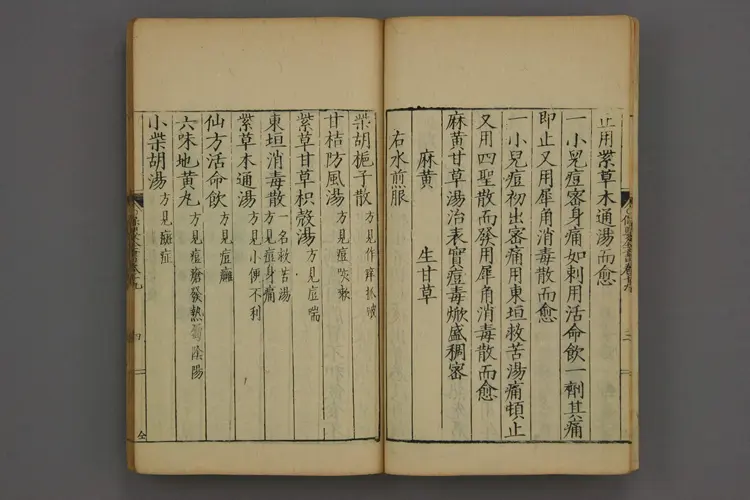 止用紫草木通湯而愈
一小兒痘審身痛如刺用活命飲一劑其痛
即止又用犀角消毒散而愈
一小兒痘初出審痛用東垣救苦湯痛頓止
又用四聖散而發用犀角消毒散而愈
麻黄甘草湯治表實痘毒焮盛稠密
麻黄 生甘草
右水煎服
柴胡梔子散 方見作痒抓破
甘桔防風湯 方見痘咳嗽
紫草甘草枳殼湯 方見痘喘
東垣消毒散 一名救苦湯 方見痘身痛
紫草木通湯 方見小便不利
仙方活命飲 方見痘癰
六味地黄丸 方見痘瘡發熱屬陰陽
小柴胡湯 方見痘症